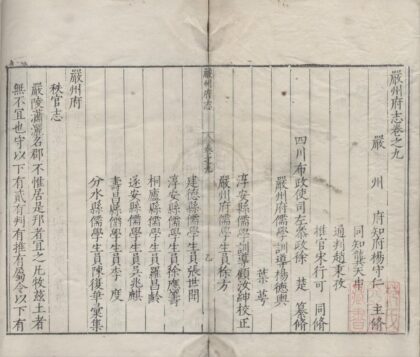 嚴州府志卷之九
嚴州府知府楊守仁主脩
同知龔天申
通判趙東
推官宋行可同脩
四川布政使司左叅政徐楚纂脩
嚴州府儒學訓導楊德輿
葉蕚
淳安縣儒學訓導顧汝紳校正
嚴州府儒學生員徐方
嚴州府志
卷之九
建德縣儒學生員張世
淳安縣儒學生員徐應簧
桐廬縣儒學生員羅昌齡
遂安縣儒學生員吳兆麒
壽昌縣儒學生員李度
分水縣儒學生員陳復華彙集
嚴州府
秩官志
嚴陵瀟灑名郡不惟居是邦者宜之凡牧兹土者
無不宜也守以下有貳有判有推有屬令以下有